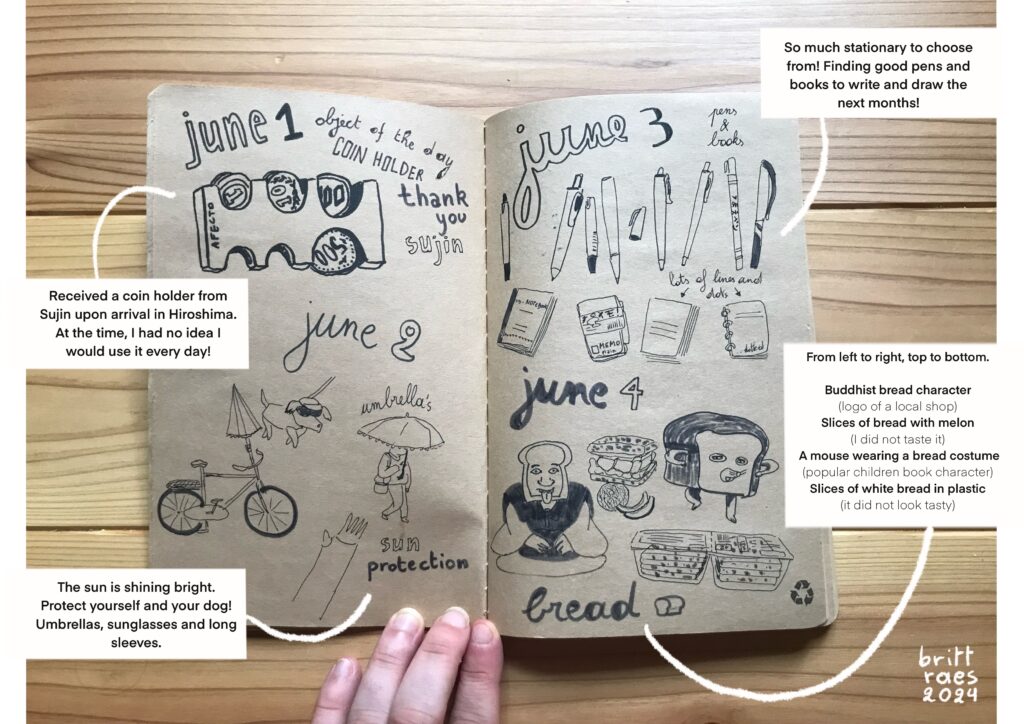 So much stationary to choose
from! Finding good pens and
books to write and draw the
next months!
june 1
object of the day
COIN HOLDER
thank
you
sujin
AFECTO
500
Received a coin holder from
Sujin upon arrival in Hiroshima.
At the time, I had no idea I
would use it every day!
june 2
umbrella's
sun
protection
The sun is shining bright.
Protect yourself and your dog!
Umbrellas, sunglasses and long
sleeves.
june 3
pens
&
books
lots of lines and
dots
NOTEBOOK
MEMO
dotted
june 4
bread
From left to right, top to bottom.
Buddhist bread character
(logo of a local shop)
Slices of bread with melon
(I did not taste it)
A mouse wearing a bread costume
(popular children book character)
Slices of white bread in plastic
(it did not look tasty)
britt
raes
2024